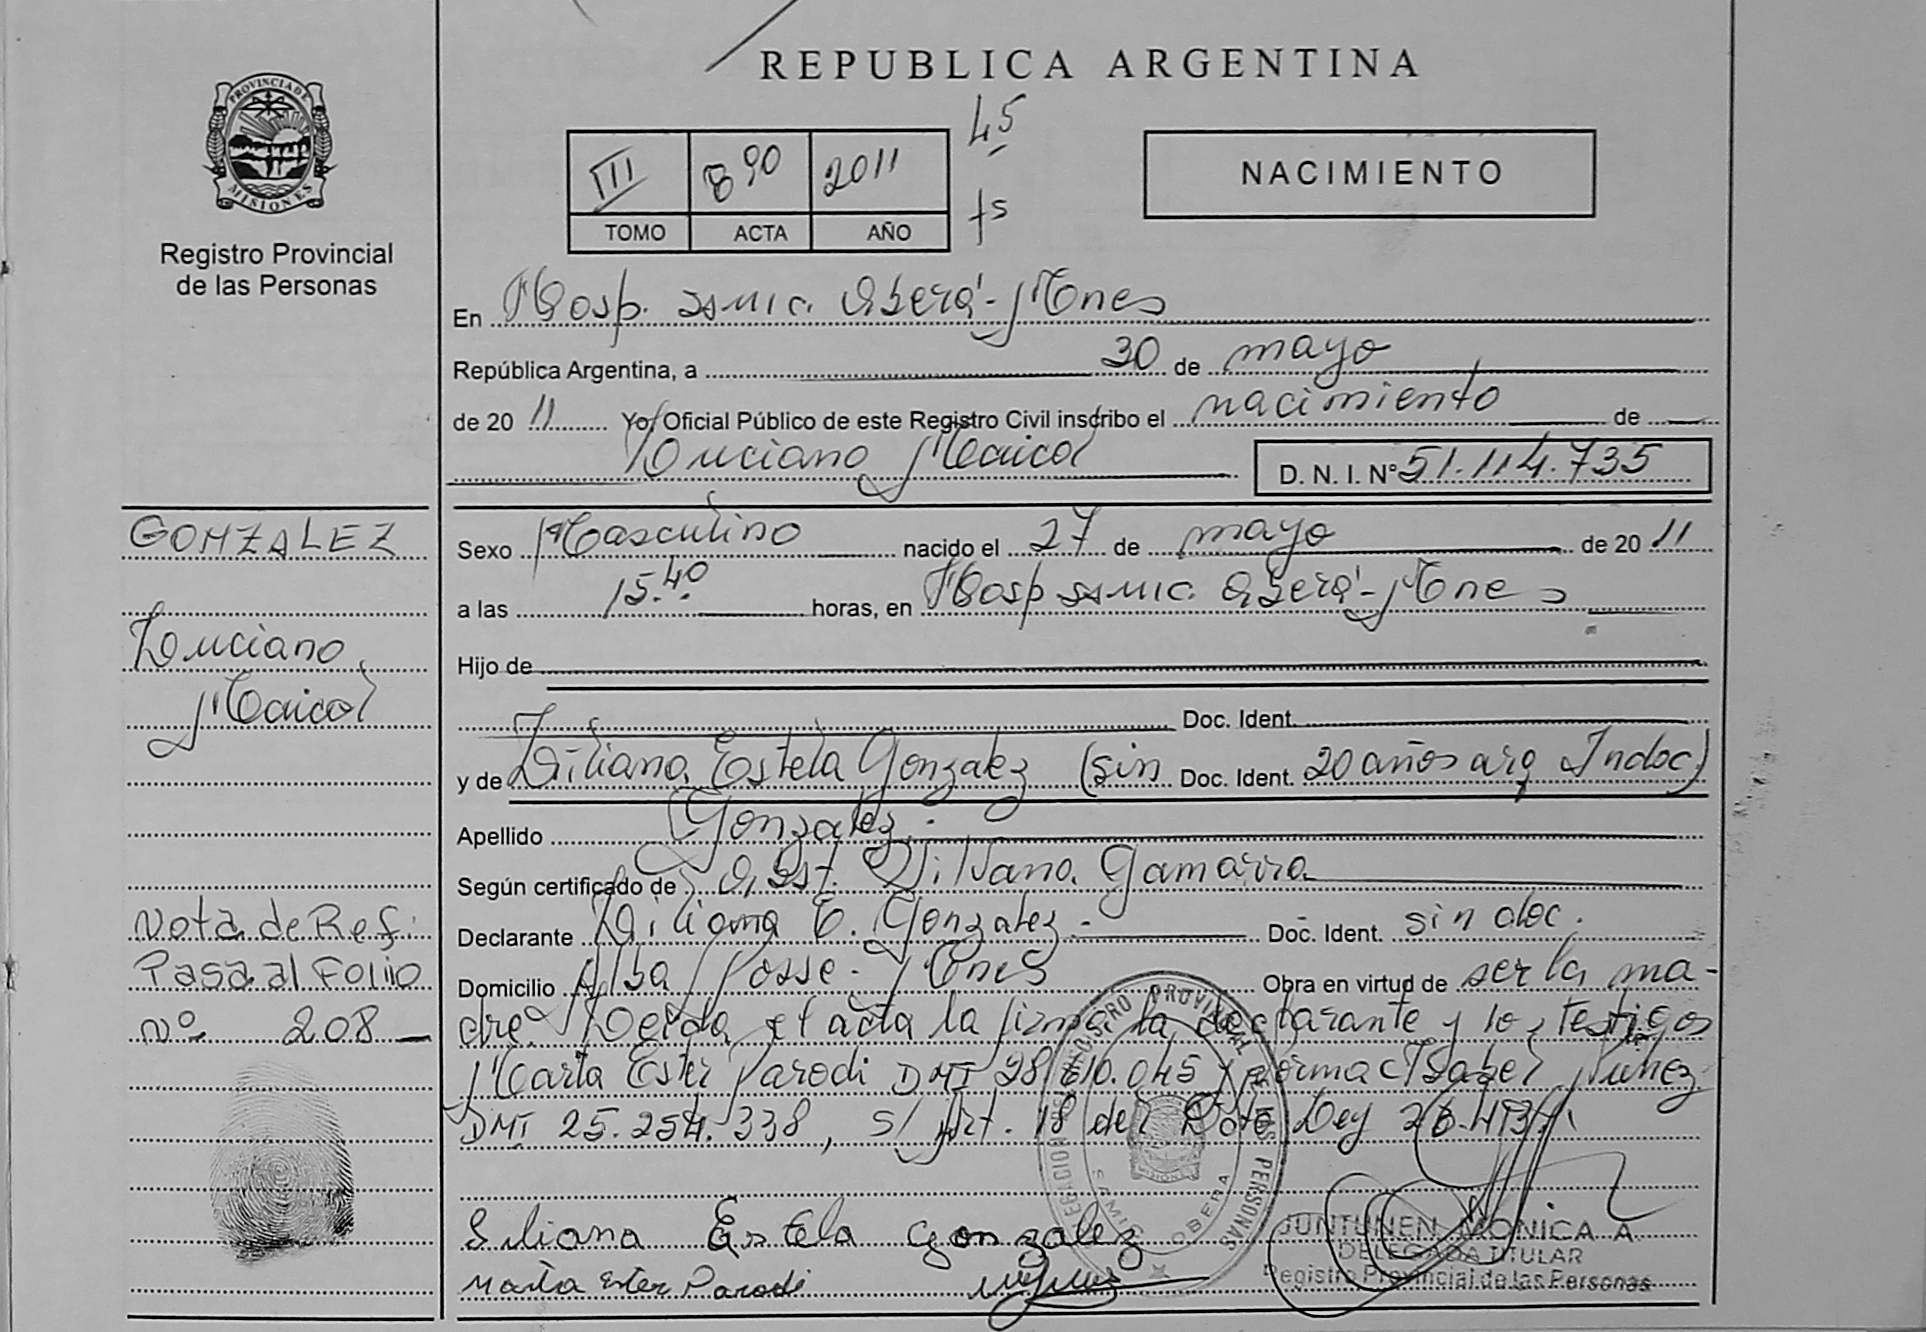 REPUBLICA ARGENTINA
PROVINCIA DE
MISIONES
Registro Provincial
de las Personas
III 890 2011
TOMO ACTA AÑO
45
fs
NACIMIENTO
En Hosp. SAMIC. Oberá - Mnes
República Argentina, a 30 de mayo
de 20 11 Yo, Oficial Público de este Registro Civil inscribo el nacimiento de
Luciano Maicol
D. N. I. N° 51.114.735
GONZALEZ
Luciano
Maicol
Sexo Masculino nacido el 27 de mayo de 20 11
a las 15.40 horas, en Hosp SAMIC. Oberá - Mnes
Hijo de
Doc. Ident.
y de Liliana Estela Gonzalez (sin Doc. Ident. 20 años arg Indoc)
Apellido Gonzalez.
Según certificado de Obst. Silvana Gamarra
Declarante Liliana E. Gonzalez. Doc. Ident. sin doc.
Domicilio Alba Posse - Mnes Obra en virtud de ser la ma-
dre. Leida el acta la firma la declarante y los testigos
Marta Ester Parodi DNI 28 610.045 y Norma Isabel Nuñez
DNI 25.254.338, s/ Art. 18 del Dto Ley 26.413
Nota de Ref:
Pasa al Folio
Nº 208
Liliana Estela Gonzalez
Marta Ester Parodi
REGISTRO PROVINCIAL DE LAS PERSONAS
OBERA
JUNTUNEN MONICA A.
DELEGADA TITULAR
Registro Provincial de las Personas